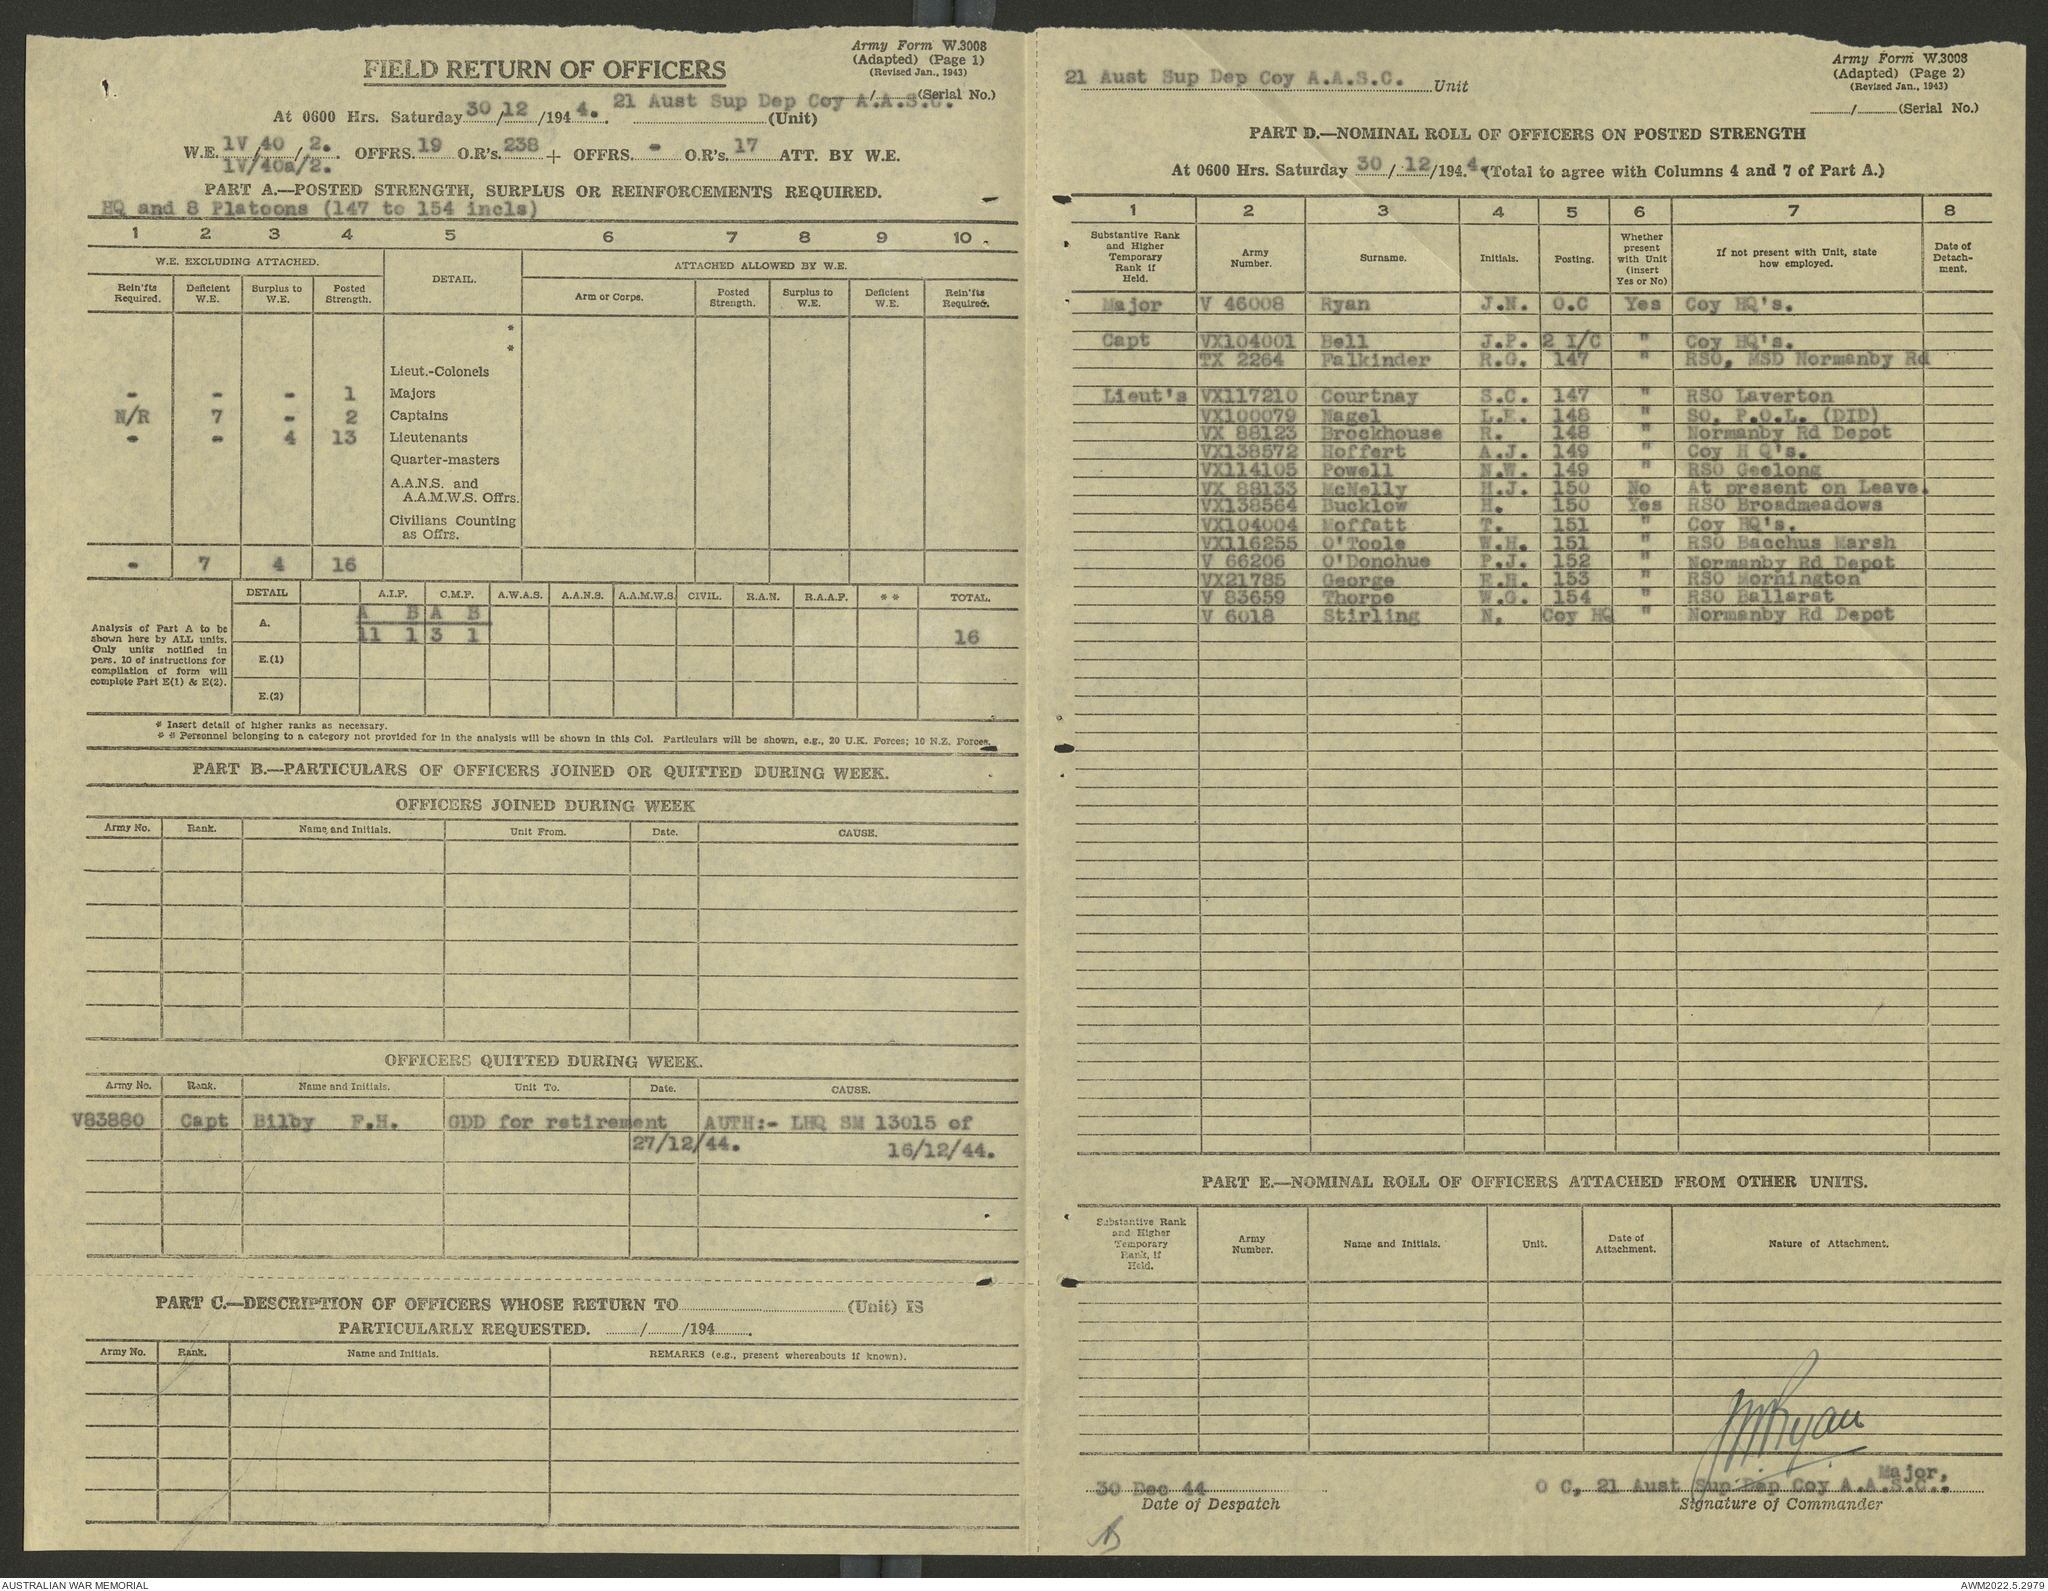 Army Form W.3008
(Adapted) (Page 1)
(Revised Jan., 1943)
FIELD RETURN OF OFFICERS
....../......(Serial No.)
At 0600 Hrs. Saturday 30/12/1944. 21 Aust Sup Dep Coy A.A.S.C. (Unit)
W.E. 1V/40/2. OFFRS. 19 O.R's. 238 + OFFRS. - O.R's. 17 ATT. BY W.E.
1V/40a/2.
PART A.—POSTED STRENGTH, SURPLUS OR REINFORCEMENTS REQUIRED.
HQ and 8 Platoons (147 to 154 incls)
1 2 3 4 5 6 7 8 9 10
W.E. EXCLUDING ATTACHED. DETAIL. ATTACHED ALLOWED BY W.E.
Rein'fts Required. Deficient W.E. Surplus to W.E. Posted Strength. Arm or Corps. Posted Strength. Surplus to W.E. Deficient W.E. Rein'fts Required.
*
*
Lieut.-Colonels
- - - 1 Majors
N/R 7 - 2 Captains
- - 4 13 Lieutenants
Quarter-masters
A.A.N.S. and
A.A.M.W.S. Offrs.
Civilians Counting
as Offrs.
- 7 4 16
DETAIL A.I.F. C.M.F. A.W.A.S. A.A.N.S. A.A.M.W.S. CIVIL. R.A.N. R.A.A.F. * * TOTAL.
Analysis of Part A to be shown here by ALL units. Only units notified in para. 10 of instructions for compilation of form will complete Part E(1) & E(2).
A. A B A B
11 1 3 1 16
E.(1)
E.(2)
* Insert detail of higher ranks as necessary.
* * Personnel belonging to a category not provided for in the analysis will be shown in this Col. Particulars will be shown, e.g., 20 U.K. Forces; 10 N.Z. Forces.
PART B.—PARTICULARS OF OFFICERS JOINED OR QUITTED DURING WEEK.
OFFICERS JOINED DURING WEEK
Army No. Rank. Name and Initials. Unit From. Date. CAUSE.
OFFICERS QUITTED DURING WEEK.
Army No. Rank. Name and Initials. Unit To. Date. CAUSE.
V83880 Capt Bilby F.H. GDD for retirement AUTH:- LHQ SM 13015 of
27/12/44. 16/12/44.
PART C.—DESCRIPTION OF OFFICERS WHOSE RETURN TO............(Unit) IS
PARTICULARLY REQUESTED. ....../....../194......
Army No. Rank. Name and Initials. REMARKS (e.g., present whereabouts if known).
Army Form W.3008
(Adapted) (Page 2)
(Revised Jan., 1943)
21 Aust Sup Dep Coy A.A.S.C. Unit
....../......(Serial No.)
PART D.—NOMINAL ROLL OF OFFICERS ON POSTED STRENGTH
At 0600 Hrs. Saturday 30/12/1944. (Total to agree with Columns 4 and 7 of Part A.)
1 2 3 4 5 6 7 8
Substantive Rank and Higher Temporary Rank if Held. Army Number. Surname. Initials. Posting. Whether present with Unit (insert Yes or No) If not present with Unit, state how employed. Date of Detach-ment.
Major V 46008 Ryan J.N. O.C Yes Coy HQ's.
Capt VX104001 Bell J.P. 2 I/C " Coy HQ's.
TX 2264 Falkinder R.G. 147 " RSO, MSD Normanby Rd
Lieut's VX117210 Courtnay S.C. 147 " RSO Laverton
VX100079 Nagel L.E. 148 " SO. P.O.L. (DID)
VX 88123 Brockhouse R. 148 " Normanby Rd Depot
VX138572 Hoffert A.J. 149 " Coy H Q's.
VX114105 Powell N.W. 149 " RSO Geelong
VX 88133 McNelly H.J. 150 No At present on Leave.
VX138564 Bucklow H. 150 Yes RSO Broadmeadows
VX104004 Moffatt T. 151 " Coy HQ's.
VX116255 O'Toole W.H. 151 " RSO Bacchus Marsh
V 66206 O'Donohue P.J. 152 " Normanby Rd Depot
VX21785 George E.H. 153 " RSO Mornington
V 83659 Thorpe W.G. 154 " RSO Ballarat
V 6018 Stirling N. Coy HQ " Normanby Rd Depot
PART E.—NOMINAL ROLL OF OFFICERS ATTACHED FROM OTHER UNITS.
Substantive Rank and Higher Temporary Rank, if Held. Army Number. Name and Initials. Unit. Date of Attachment. Nature of Attachment.
JNRyan
Major,
30 Dec 44 O C, 21 Aust Sup Dep Coy A.A.S.C..
Date of Despatch Signature of Commander
AUSTRALIAN WAR MEMORIAL AWM2022.5.2979